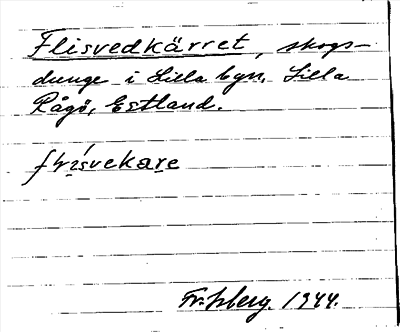 Flisvedkärret, skogs-
dunge i Lilla byn, Lilla
Rågö, Estland.
Fr. Isberg. 1944.